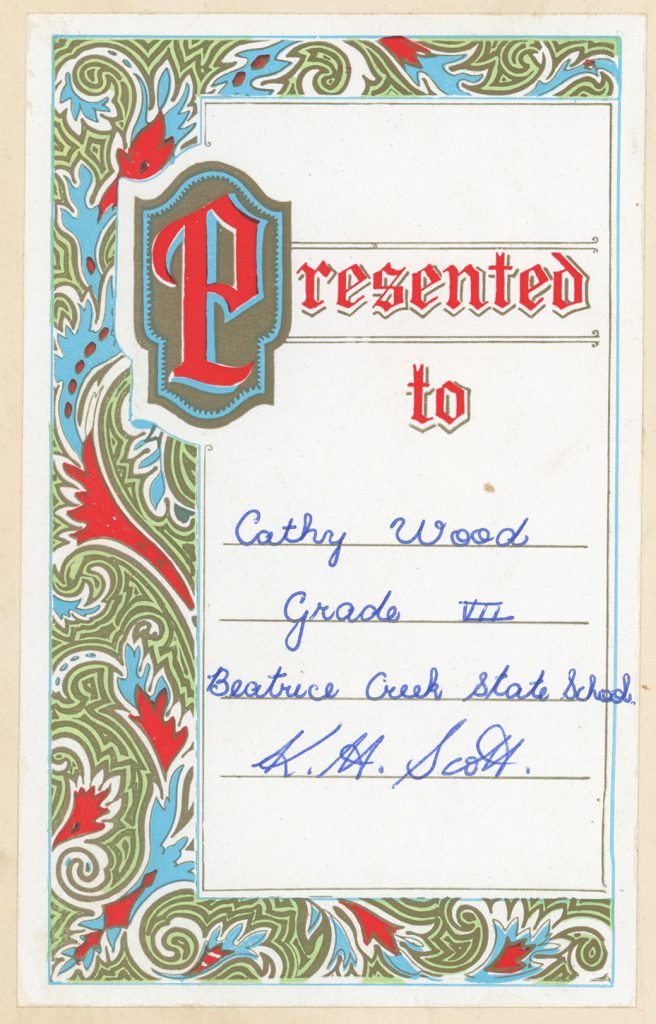 Presented
to
Cathy Wood
Grade VII
Beatrice Creek State School.
K. H. Scott.